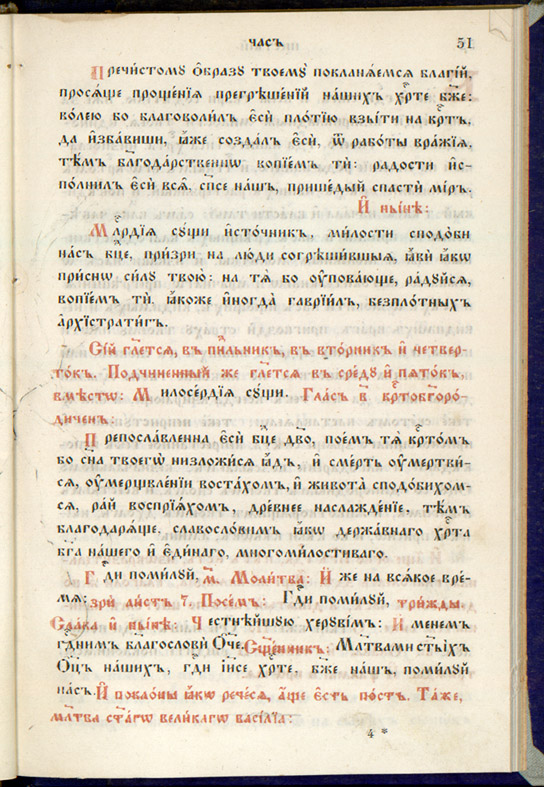 часъ 51
Пречи́стомꙋ ѻ҆́бразꙋ твоемꙋ̀ покланѧ́емсѧ благі́й,
просѧ́ще проще́нїѧ прегрѣше́нїй на́шихъ хр҇тѐ бж҃е:
во́лею бо благоволи́лъ є҆сѝ пло́тїю взы́ти на кр҇тъ,
да и҆зба́виши, ꙗ҆̀же созда́лъ є҆сѝ, ѿ рабо́ты вра́жїѧ,
тѣ́мъ благода́рственнѡ вопїе́мъ тѝ: ра́дости и҆с-
по́лнилъ є҆сѝ всѧ̑, сп҃се на́шъ, прише́дый спастѝ мі́ръ.
И҆ ны́нѣ:
Млⷭ҇рдїѧ сꙋ́щи и҆сто́чникъ, ми́лости сподо́би
на́съ бц҃е, при́зри на лю́ди согрѣши́вшыѧ, ꙗ҆вѝ ꙗ҆́кѡ
при́снѡ си́лꙋ твою̀: на тѧ́ бо ᲂу҆пова́юще, ра́дꙋйсѧ,
вопїе́мъ тѝ, ꙗ҆́коже и҆ногда̀ гаврїи́лъ, безпло́тныхъ
а҆рхїстрати́гъ.
Сі́й гл҃етсѧ, въ пн҃льникъ, въ вто́рникъ и҆ четвер-
то́къ. Подчине́нный же гл҃етсѧ въ сре́дꙋ и҆ пѧто́къ,
вмѣ́стѡ: М илосе́рдїѧ сꙋ́щи. Гла́съ в҃ кр҇тобгоро́-
диченъ:
Препосла́вленна є҆сѝ бц҃е дв҃о, пое́мъ тѧ̀ кр҇то́мъ
бо сн҃а твоегѡ̀ низложи́сѧ а҆́дъ, и҆ сме́рть ᲂу҆мертви́-
сѧ, ᲂу҆мерщвле́нїи воста́хомъ, и҆ живота̀ сподо́бихом-
сѧ, ра́й воспрїѧ́хомъ, дре́внее наслажде́нїе. Тѣ́мъ
благодарѧ́ще, славосло́вимъ ꙗ҆́кѡ держа́внаго хр҇та̀
бг҃а на́шего и҆ є҆ди́наго, многоми́лостиваго.
Г дⷭ҇и поми́лꙋй, м҃. Моли́тва: И҆ же на всѧ́кое вре́-
мѧ: зрѝ ли́стъ ۰ Посе́мъ: Гдⷭ҇и поми́лꙋй, три́жды.
Сла́ва и҆ ны́нѣ: Ч естнѣ́йшꙋю херꙋві́мъ: И҆ менемъ
гдⷭ҇нимъ благословѝ Ѻ҆́че. Сщ҃е́нникъ: Мл҃твами ст҃ы́хъ
Ѻ҆ц҃ъ на́шихъ, гдⷭ҇и і҆и҃се хр҇тѐ, бж҃е на́шъ, поми́лꙋй
на́съ. И҆ покло́ны ꙗ҆́кѡ рече́сѧ, а҆́ще є҆́сть по́стъ. Та́же,
мл҃тва ст҃а́гѡ вели́кагѡ васі́лїа:
4 *